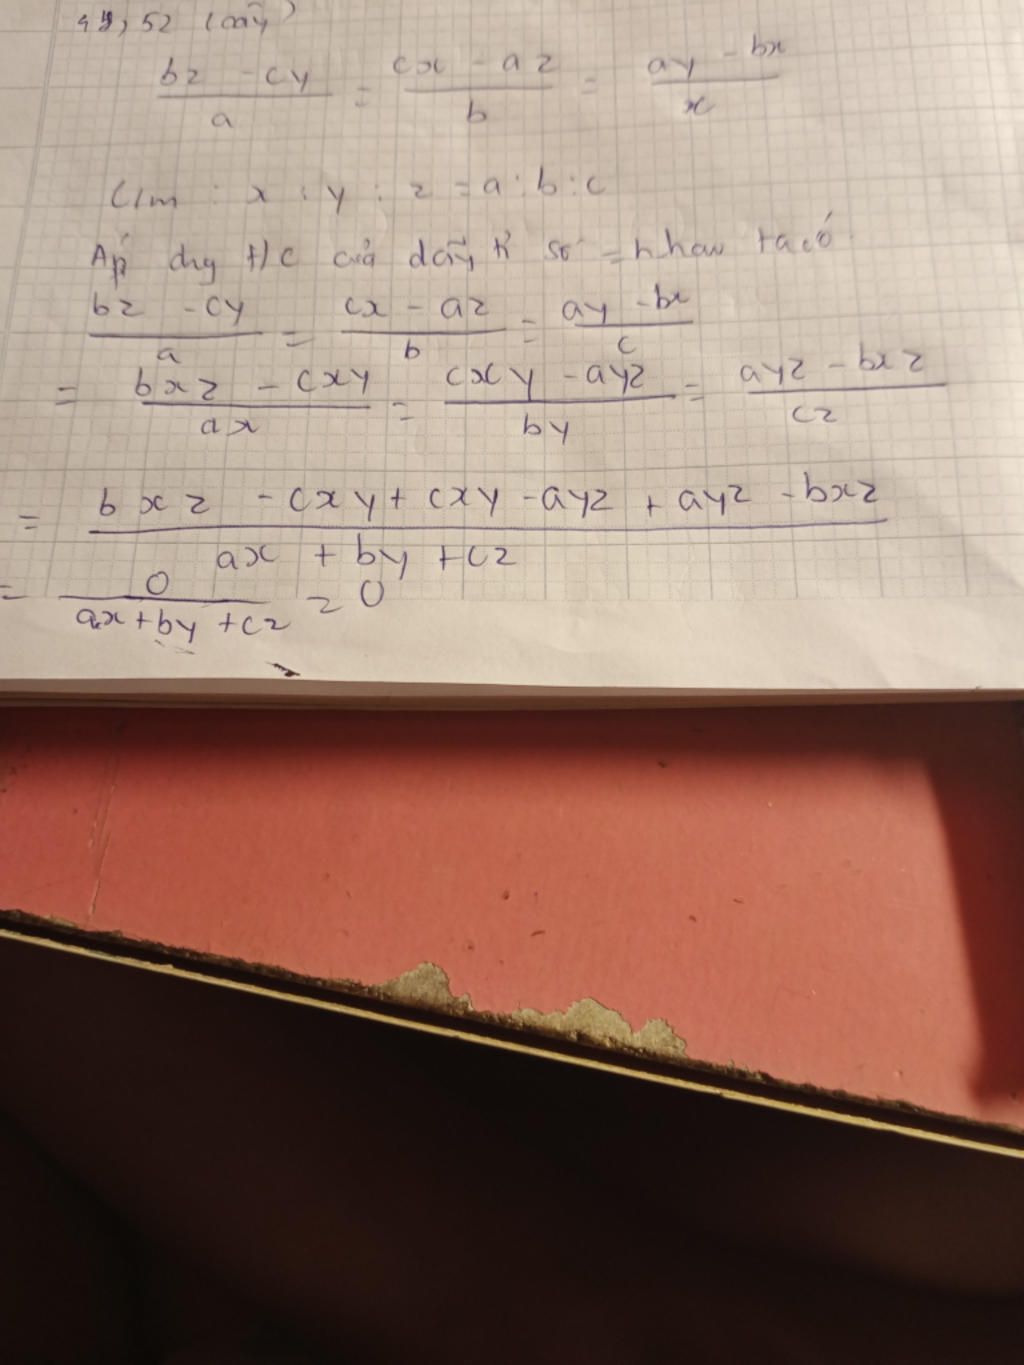 49, 52 (dãy)
bz - cy / a = cx - az / b = ay - bx / x
C/m : x : y : z = a : b : c
Áp dng t/c của dãy tỉ số = nhau ta có
bz - cy / a = cx - az / b = ay - bx / c
= bxz - cxy / ax = cxy - ayz / by = ayz - bxz / cz
= bxz - cxy + cxy - ayz + ayz - bxz / ax + by + cz
= 0 / ax + by + cz = 0